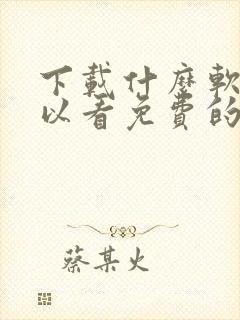 下載什麼軟
以看免費的
蔡某火